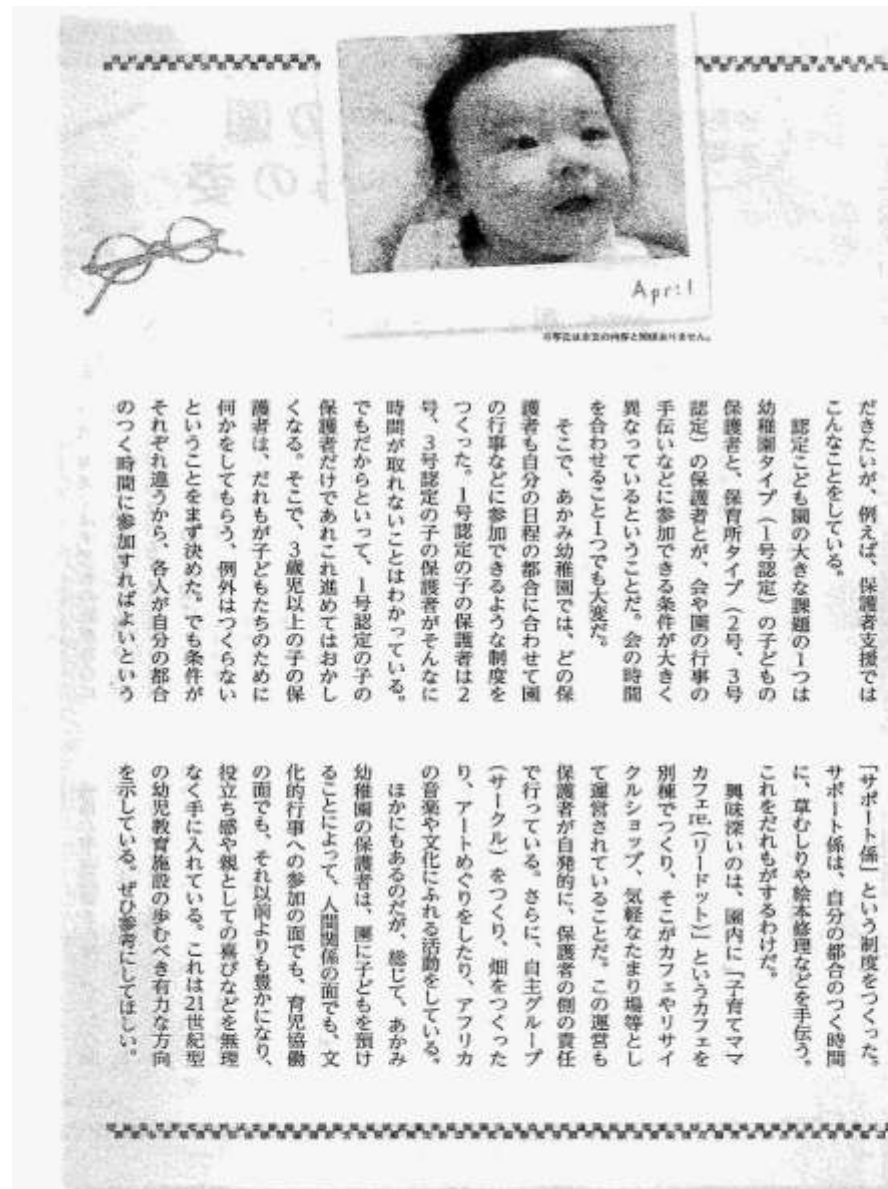 April
※写真は本文の内容と関係ありません。
だきたいが、例えば、保護者支援では
こんなことをしている。
認定こども園の大きな課題の1つは
幼稚園タイプ（1号認定）の子どもの
保護者と、保育所タイプ（2号、3号
認定）の保護者とが、会や園の行事の
手伝いなどに参加できる条件が大きく
異なっているということだ。会の時間
を合わせること1つでも大変だ。
そこで、あかみ幼稚園では、どの保
護者も自分の日程の都合に合わせて園
の行事などに参加できるような制度を
つくった。1号認定の子の保護者は2
号、3号認定の子の保護者がそんなに
時間が取れないことはわかっている。
でもだからといって、1号認定の子の
保護者だけであれこれ進めてはおかし
くなる。そこで、3歳児以上の子の保
護者は、だれもが子どもたちのために
何かをしてもらう、例外はつくらない
ということをまず決めた。でも条件が
それぞれ違うから、各人が自分の都合
のつく時間に参加すればよいという
「サポート係」という制度をつくった。
サポート係は、自分の都合のつく時間
に、草むしりや絵本修理などを手伝う。
これをだれもがするわけだ。
興味深いのは、園内に「子育てママ
カフェre.（リードット）」というカフェを
別棟でつくり、そこがカフェやリサイ
クルショップ、気軽なたまり場等とし
て運営されていることだ。この運営も
保護者が自発的に、保護者の側の責任
で行っている。さらに、自主グループ
（サークル）をつくり、畑をつくった
り、アートめぐりをしたり、アフリカ
の音楽や文化にふれる活動をしている。
ほかにもあるのだが、総じて、あかみ
幼稚園の保護者は、園に子どもを預け
ることによって、人間関係の面でも、文
化的行事への参加の面でも、育児協働
の面でも、それ以前よりも豊かになり、
役立ち感や親としての喜びなどを無理
なく手に入れている。これは21世紀型
の幼児教育施設の歩むべき有力な方向
を示している。ぜひ参考にしてほしい。